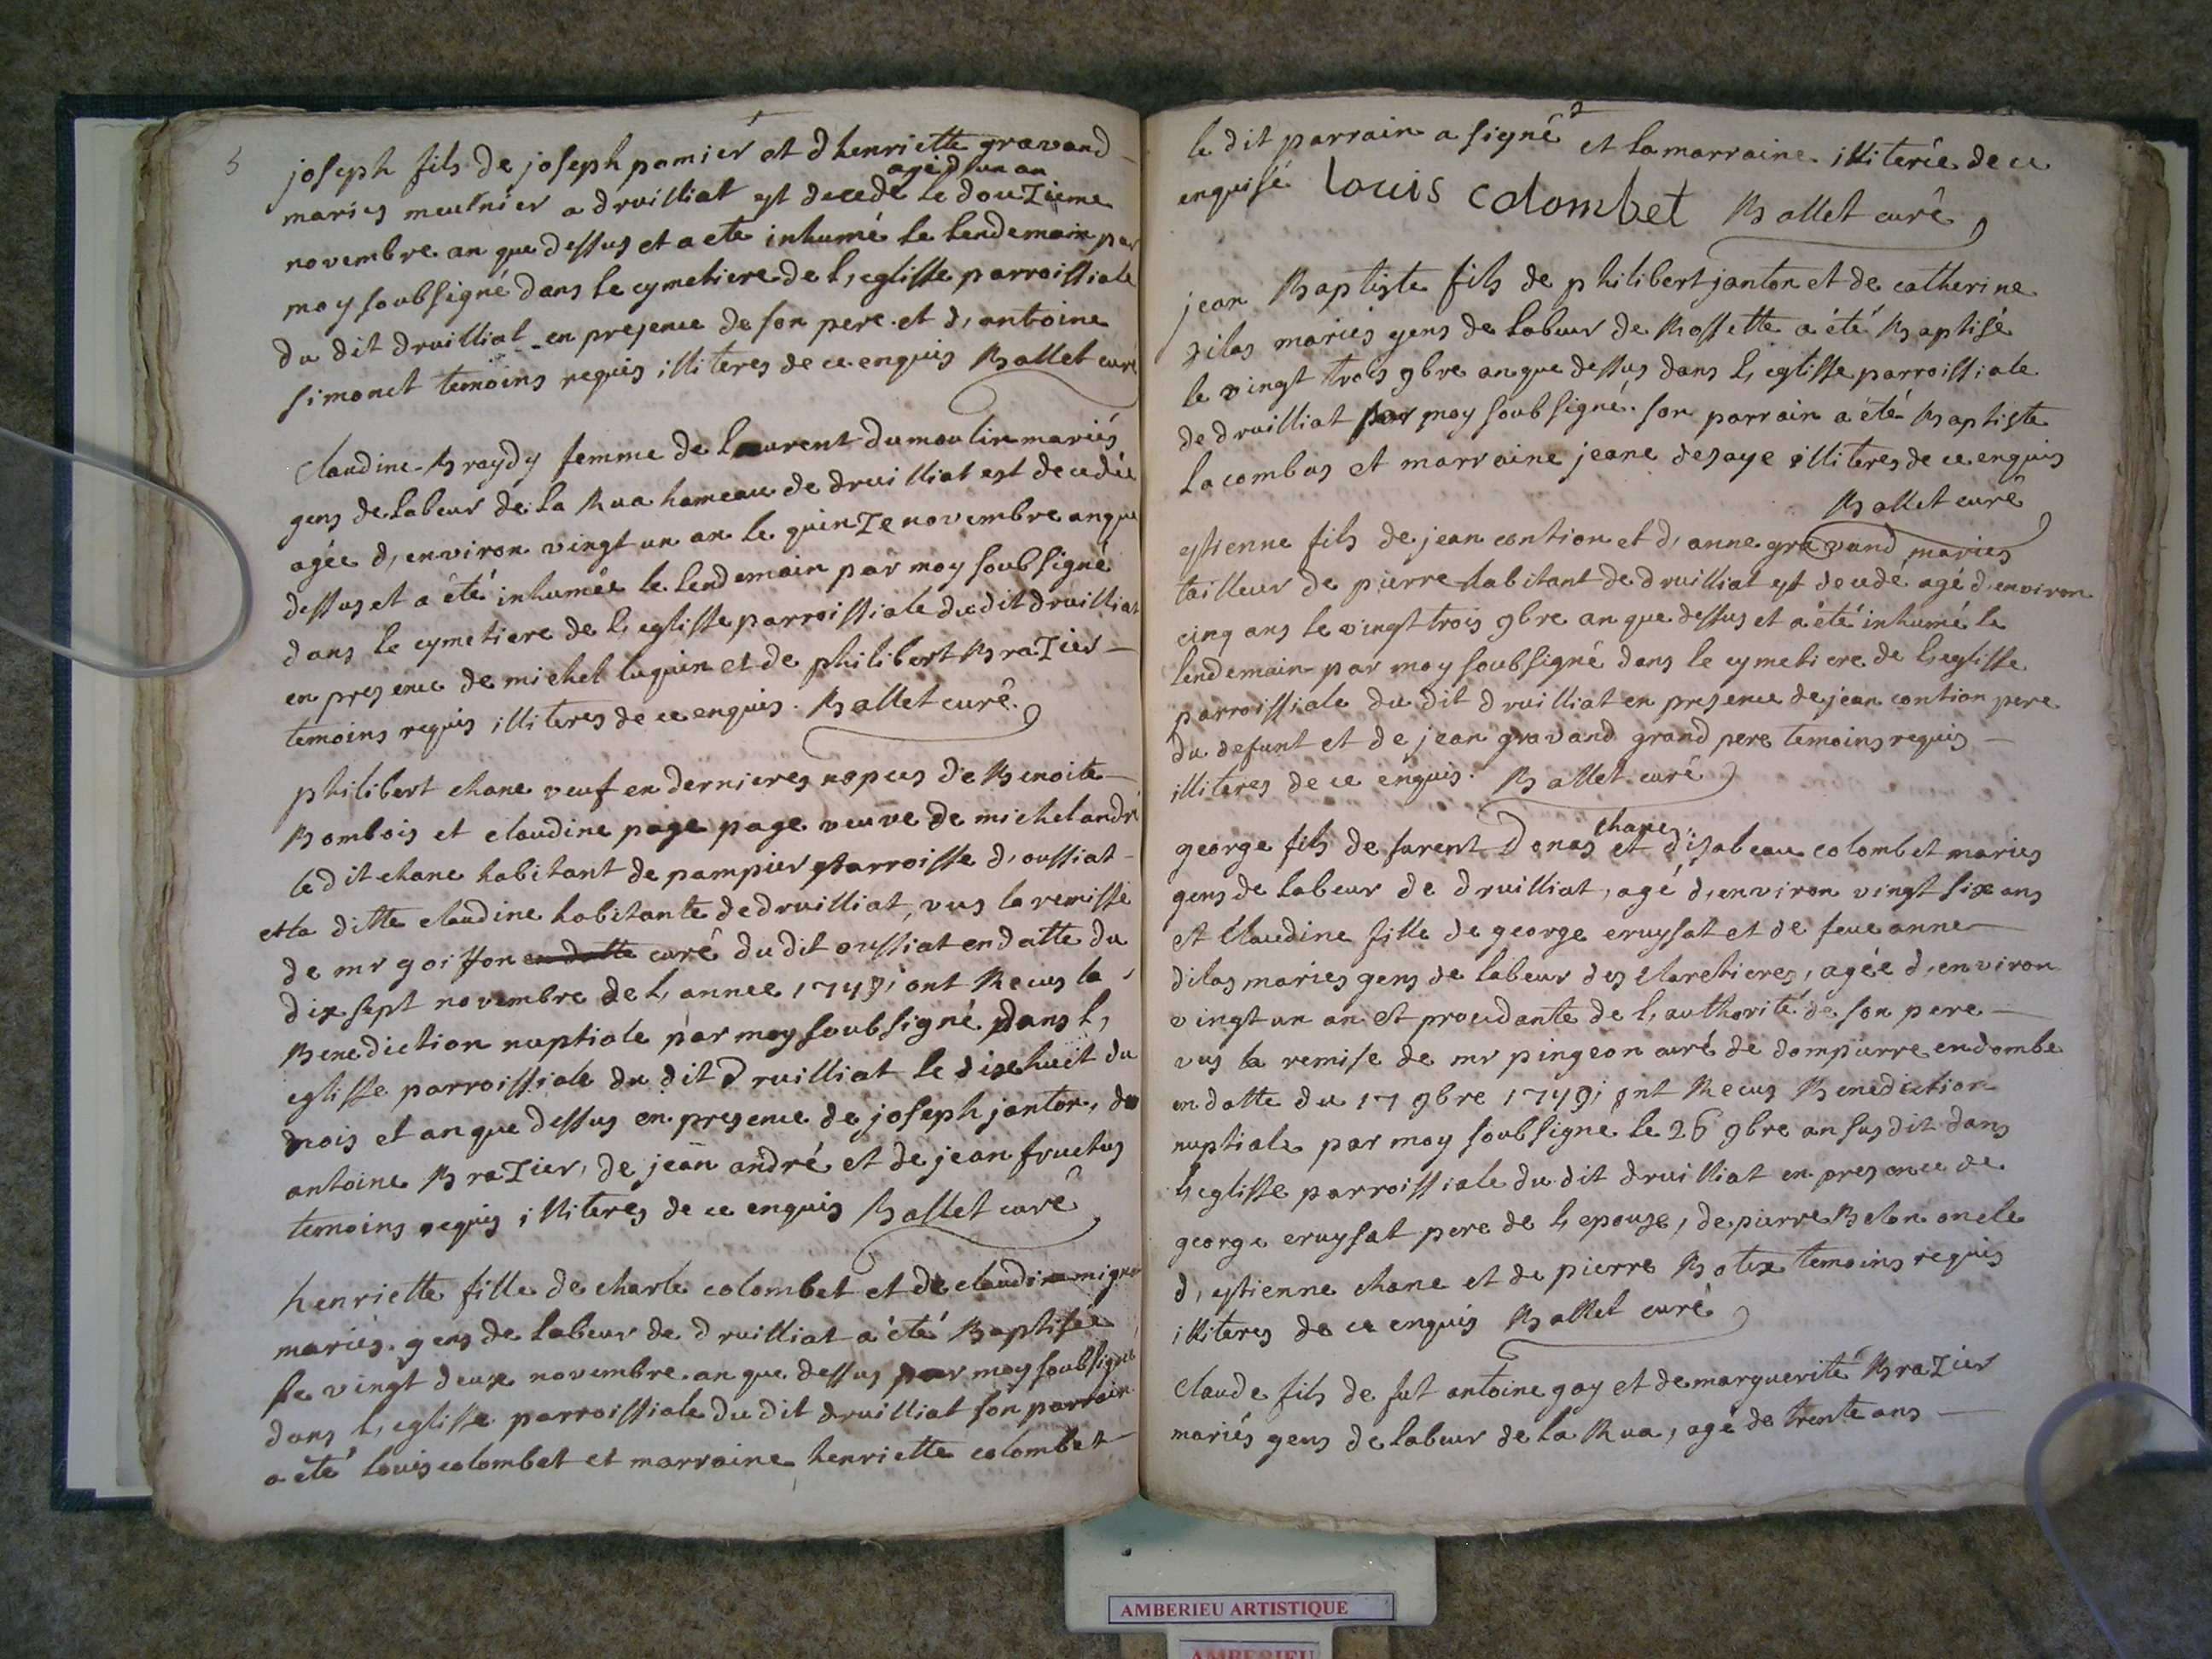 5
joseph fils de joseph pomier et d henriette gravand
agé d'un an
mariés meulnier a druilliat est decedé le douzieme
novembre an que dessus et a eté inhumé le lendemain par
moy soubsigné dans le cymetiere de l, eglisse parroissiale
du dit druilliat en presence de son pere et d, antoine
simonet temoins requis illiteres de ce enquis Ballet curé
Claudine Braydy femme de laurent dumoulin mariés
gens de labeur de la Rua hameau de druilliat est decedée
agée d, environ vingt un an le quinze novembre an que
dessus et a été inhumée le lendemain par moy soubsigné
dans le cymetiere de l, eglisse parroissiale du dit druilliat
en presence de michel luquin et de philibert Brazier
temoins requis illiteres de ce enquis. Ballet curé
philibert chane veuf en dernieres nopces de Benoite
Bombois et claudine page page veuve de michel andré
le dit chane habitant de pampier parroisse d, oussiat
et la ditte claudine habitante de druilliat, vus la remisse
de mr goiffon en datte curé du dit oussiat en datte du
dix sept novembre de l, annee 1749; ont Recus la
Benediction nuptiale par moy soubsigné dans l,
eglisse parroissiale du dit druilliat le dixhuit du
mois et an que dessus en presence de joseph janton, de
antoine Brazier, de jean andré et de jean fructus
temoins requis illiteres de ce enquis Ballet curé
henriette fille de charle colombet et de claudine
mariés gens de labeur de druilliat a été Baptisée
le vingt deux novembre an que dessus par moy soubsigné
dans l, eglisse parroissiale du dit druilliat son parrain
a été louis colombet et marraine henriette colombet
le dit parrain a signé et la marraine illiterée de ce
enquise louis colombet Ballet curé
jean Baptiste fils de philibert janton et de catherine
dilas mariés gens de labeur de Rossette a été Baptisé
le vingt trois 9bre an que dessus dans l, eglisse parroissiale
de druilliat par moy soubsigné. son parrain a été Baptiste
lacombas et marraine jeane desaye illiteres de ce enquis
Ballet curé
estienne fils de jean contion et d, anne gravand mariés
tailleur de pierre habitant de druilliat est decedé agé d, environ
cinq ans le vingt trois 9bre an que dessus et a été inhumé le
lendemain par moy soubsigné dans le cymetiere de l, eglisse
parroissiale du dit druilliat en presence de jean contion pere
du defunt et de jean gravand grand pere temoins requis
illiteres de ce enquis. Ballet curé
chane
george fils de furent donas et d'isabeau colombet mariés
gens de labeur de druilliat, agé d, environ vingt six ans
et Claudine fille de george cruysat et de feue anne
dilas mariés gens de labeur des Claretieres, agée d, environ
vingt un an et procedante de l, authorité de son pere
vus la remise de mr pingeon curé de dompierre en dombe
en datte du 17 9bre 1749; ont Recus Benediction
nuptiale par moy soubsigne le 26 9bre an susdit dans
l, eglisse parroissiale du dit druilliat en presence de
george cruysat pere de l, epouse, de pierre Belon oncle
d, estienne chane et de pierre Botex temoins requis
illiteres de ce enquis Ballet curé
Claude fils de fut antoine gay et de marguerite Brazier
mariés gens de labeur de la Rua, agé de trente ans
AMBERIEU ARTISTIQUE
AMBERIEU